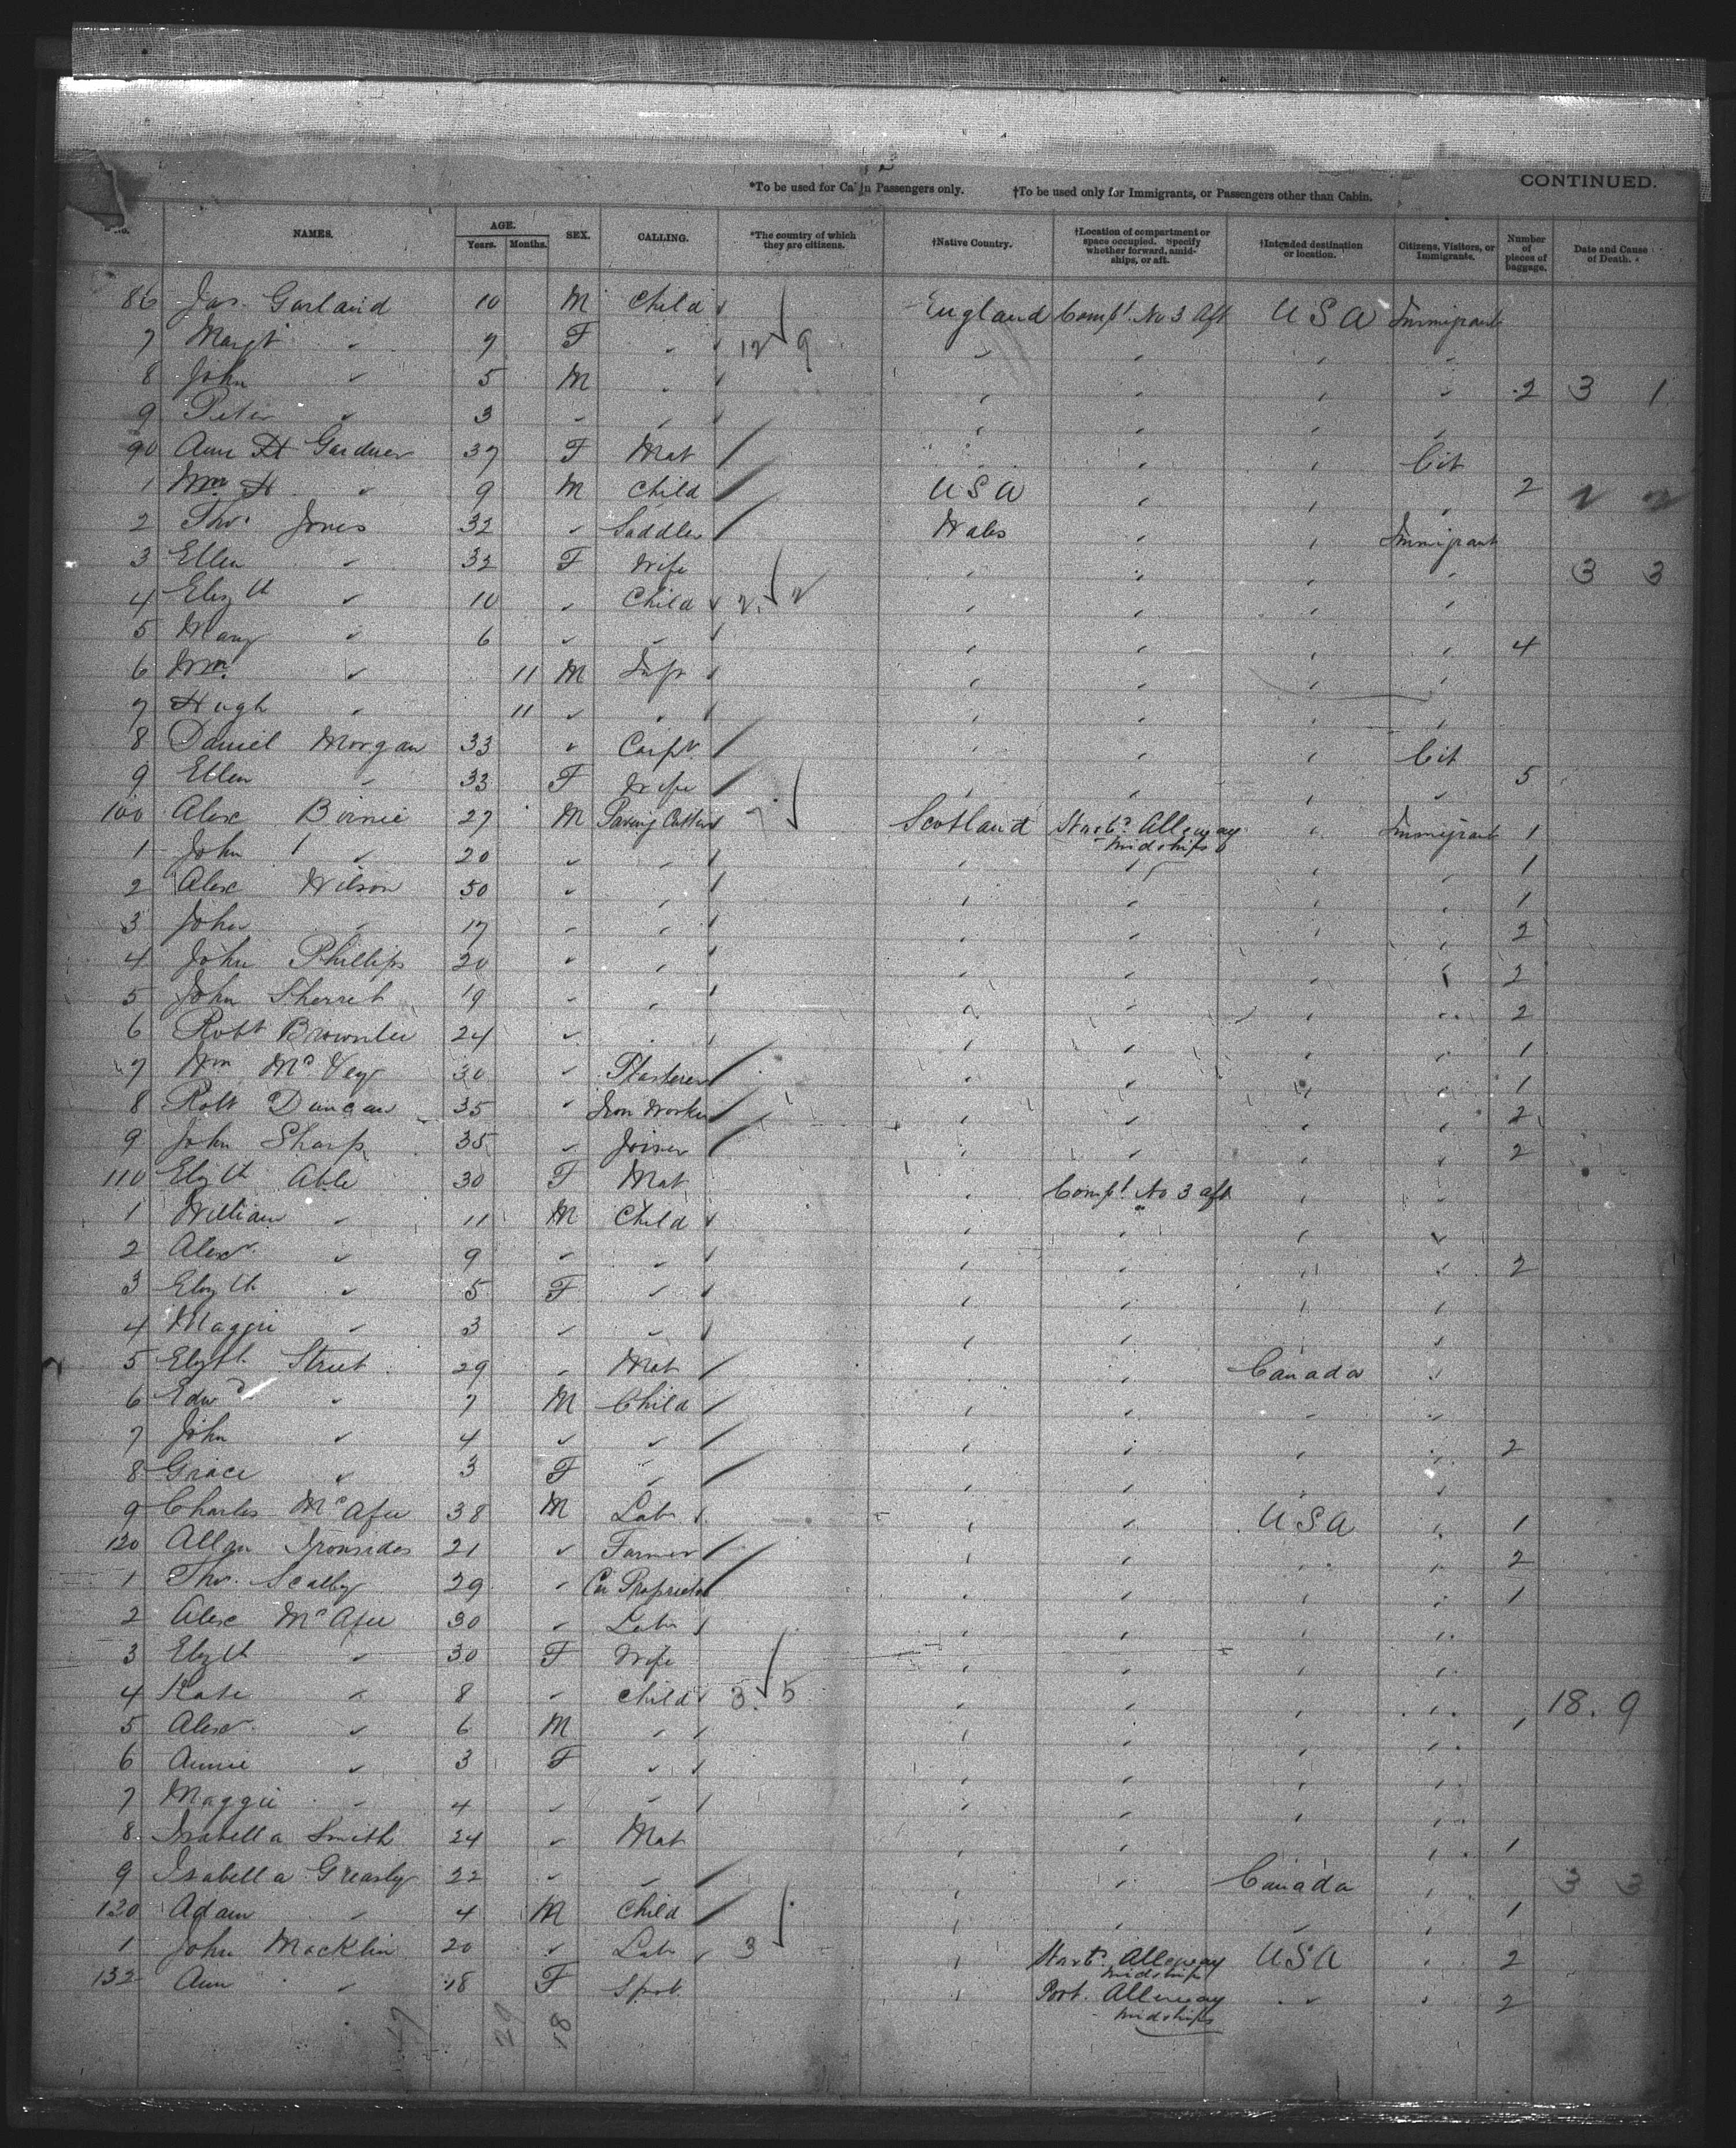 3
*To be used for Cabin Passengers only. †To be used only for Immigrants, or Passengers other than Cabin. CONTINUED.
No. NAMES. AGE. Years. Months. SEX. CALLING. *The country of which they are citizens. †Native Country. †Location of compartment or space occupied. Specify whether forward, amidships, or aft. †Intended destination or location. Citizens, Visitors, or Immigrants. Number of pieces of baggage. Date and Cause of Death.
86 Jas. Garland 10 M Child England Compt. No 3 Aft U S A Immigrant
7 Margt " 7 F " 12 9 " " " "
8 John " 5 M " " " " " 2 3 1
9 Peter " 3 " " " " " "
90 Ann H Gardner 37 F Mat " " " Cit
1 Wm H " 9 M Child U S A " " " 2 2 2
2 Thos Jones 32 " Saddler Wales " " Immigrant
3 Ellen " 32 F Wife " " " " 3 3
4 Elizth " 10 " Child 2 2 " " " "
5 Mary " 6 " " " " " " 4
6 Wm " 11 M Inft " " " "
7 Hugh " 11 " " " " " "
8 Daniel Morgan 33 " Carpr " " " Cit
9 Ellen " 33 F Wife " " " " 5
100 Alex Birnie 27 M Paving Cutter 7 Scotland Starbd Alleyway midships " Immigrant 1
1 John " 20 " " " " " " 1
2 Alex Wilson 50 " " " " " " 1
3 John " 17 " " " " " " 2
4 John Phillips 20 " " " " " " 2
5 John Sherret 19 " " " " " " 2
6 Robt Brownlee 24 " " " " " " 1
7 Wm McVey 30 " Plasterer " " " " 1
8 Robt Duncan 35 " Iron Worker " " " " 2
9 John Sharp 35 " Joiner " " " " 2
110 Elizth Able 30 F Mat " Compt. No 3 aft " "
1 William " 11 M Child " " " "
2 Alexr " 9 " " " " " " 2
3 Elizth " 5 F " " " " "
4 Maggie " 3 " " " " " "
5 Elizth Street 29 " Mat " " Canada "
6 Edwd " 7 M Child " " " "
7 John " 4 " " " " " " 2
8 Grace " 3 F " " " " "
9 Charles McAfee 38 M Labr " " U S A " 1
120 Allan Ironsides 21 " Farmer " " " " 2
1 Thos. Scalby 29 " Car Proprietor " " " " 1
2 Alex McAfee 30 " Labr " " " "
3 Elizth " 30 F Wife " " " "
4 Kate " 8 " Child 3 5 " " " " 18. 9
5 Alexr " 6 M " " " " " 1
6 Annie " 3 F " " " " "
7 Maggie " 4 " " " " " "
8 Isabella Smith 24 " Mat " " " " 1
9 Isabella Greasly 22 " " " " Canada " 3 3
130 Adam " 4 M Child " " " " 1
1 John Macklin 20 " Labr 3 " Starbd Alleyway midships U S A " 2
132 Ann " 18 F Spst " Port. Alleyway midships " " 2
47 29 18